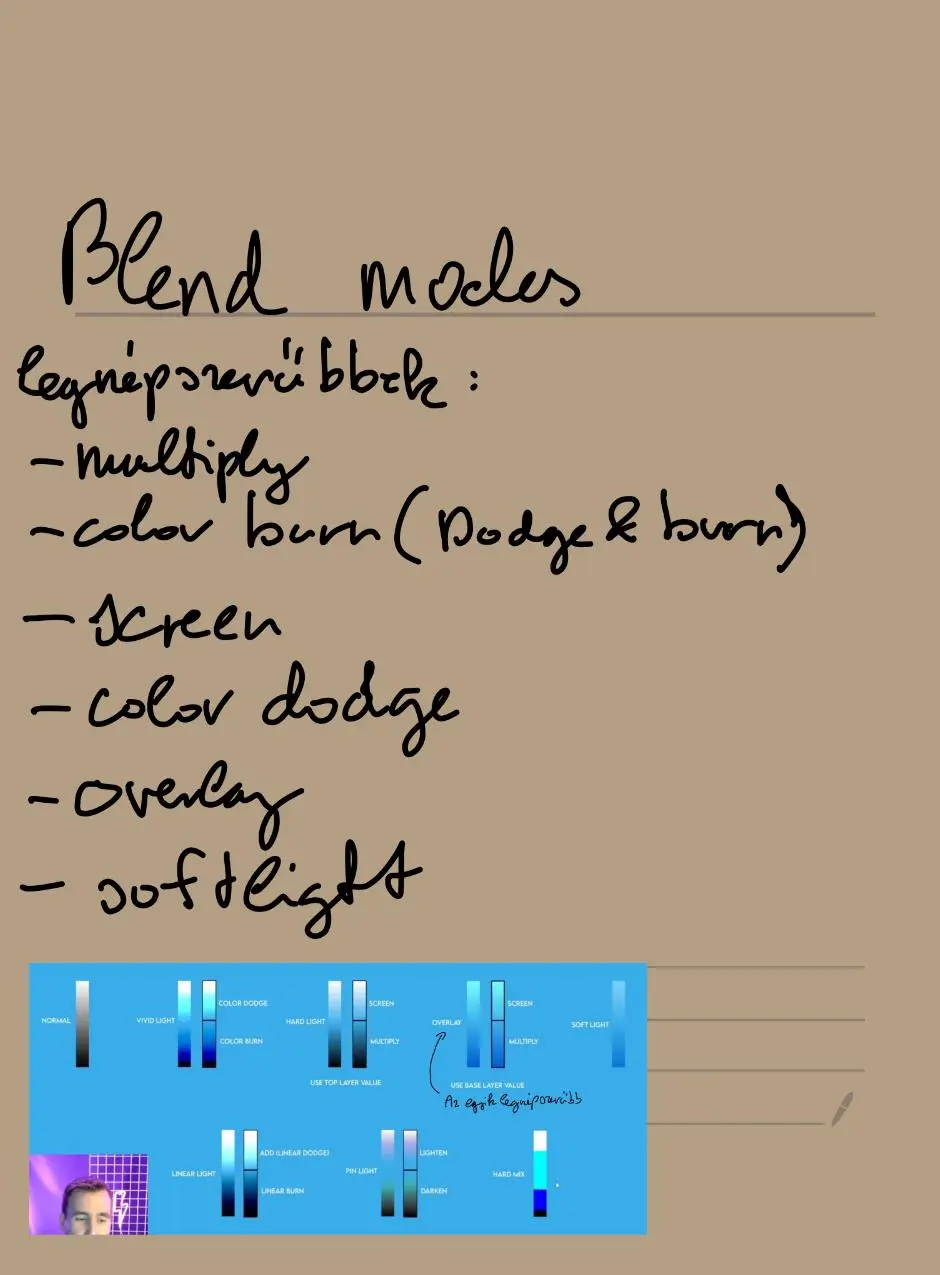 Blend modes
legnépszerűbbek :
- multiply
- color burn (Dodge & burn)
- screen
- color dodge
- overlay
- softlight
NORMAL
VIVID LIGHT
COLOR DODGE
COLOR BURN
HARD LIGHT
SCREEN
MULTIPLY
USE TOP LAYER VALUE
OVERLAY
SCREEN
MULTIPLY
USE BASE LAYER VALUE
SOFT LIGHT
Az egyik legnépszerűbb
LINEAR LIGHT
ADD (LINEAR DODGE)
LINEAR BURN
PIN LIGHT
LIGHTEN
DARKEN
HARD MIX